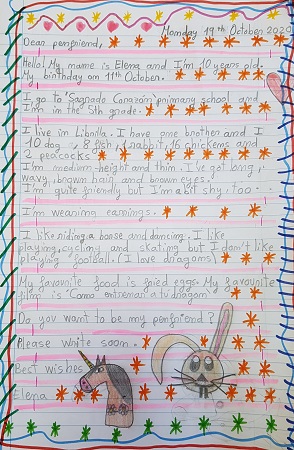 Monday 19th October 2020
Dear penfriend,
Hello! My name is Elena and I'm 10 years old.
My birthday om 11th October.
I go to "Sagrado Corazón" primary school and
I'm in the 5th grade.
I live in Librilla. I have one brother and I
10 dog, 8 fish, 1 rabbit, 16 chickens and
2 peacocks
I'm medium-height and thin. I've got long,
wavy, brown hair and brown eyes.
I'm quite friendly but I'm a bit shy too.
I'm wearing earrings.
I like riding a horse and dancing. I like
playing, cycling and skating but I don't like
playing football. (I love dragons)
My favourite food is fried eggs. My favourite
film is "Como entrenar a tu dragón"
Do you want to be my penfriend?
Please write soon.
Best wishes
Elena